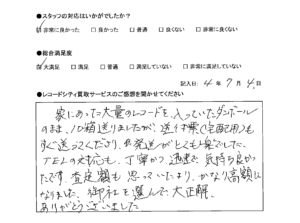 ●スタッフの対応はいかがでしたか？
☑非常に良かった □良かった □普通 □良くない □非常に良くない
●総合満足度
☑大満足 □満足 □普通 □満足していない □非常に満足していない
記入日：4年7月4日
●レコードシティ買取サービスのご感想を聞かせてください
家にあった大量のレコードを、入っていたダンボール
のまま、10箱送りましたが、送り状（宅配用）も
すぐ送ってくださり、発送がとても楽でした。
TELの対応も、丁寧かつ迅速で、気持ち良かっ
たです。査定額も思っていたより、かなり高額に
なりました。御社を選んで大正解。
ありがとうございました